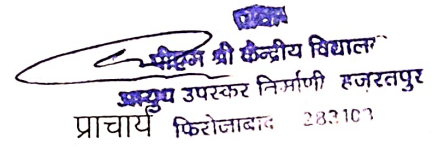 पीएम श्री केन्द्रीय विद्यालय
उपस्कर निर्माणी हज़रतपुर
प्राचार्य फिरोजाबाद 283103